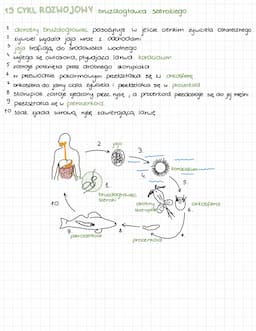 15 CYKL ROZWOJOWY bruzdogłowca szerokiego
1 dorosły bruzdogłowiec pasożytuje w jelicie cienkim żywiciela ostatecznego
2 żywiciel wydala jaja wraz z odchodami
3 jaja trafiają do środowiska wodnego
4 wylęga się orzęsiona, pływająca larwa koracidium
5 zostaje połknięta przez drobnego skorupiaka
6 w przewodzie pokarmowym przekształca się w onkosferę
7 onkosfera do jamy ciała żywiciela i przekształca się w procerkoid
8 skorupiak zostaje zjedzony przez rybę, a procerkoid przedostaje się do jej mięśni
9 przekształca się w plerocerkoid
10 ssak zjada surową rybę zawierającą larwę
jajo
2.
3.
koracidium
1.
bruzdogłowiec
szeroki
4.
5.
drobny
skorupiak
6.
onkosfera
10.
7.
procerkoid
8.
9.
plerocerkoid